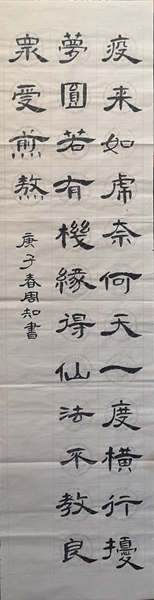 疫来如虎奈何天一度横行擾
夢圓若有機緣得仙法不教良
衆受煎熬
庚子春周知書